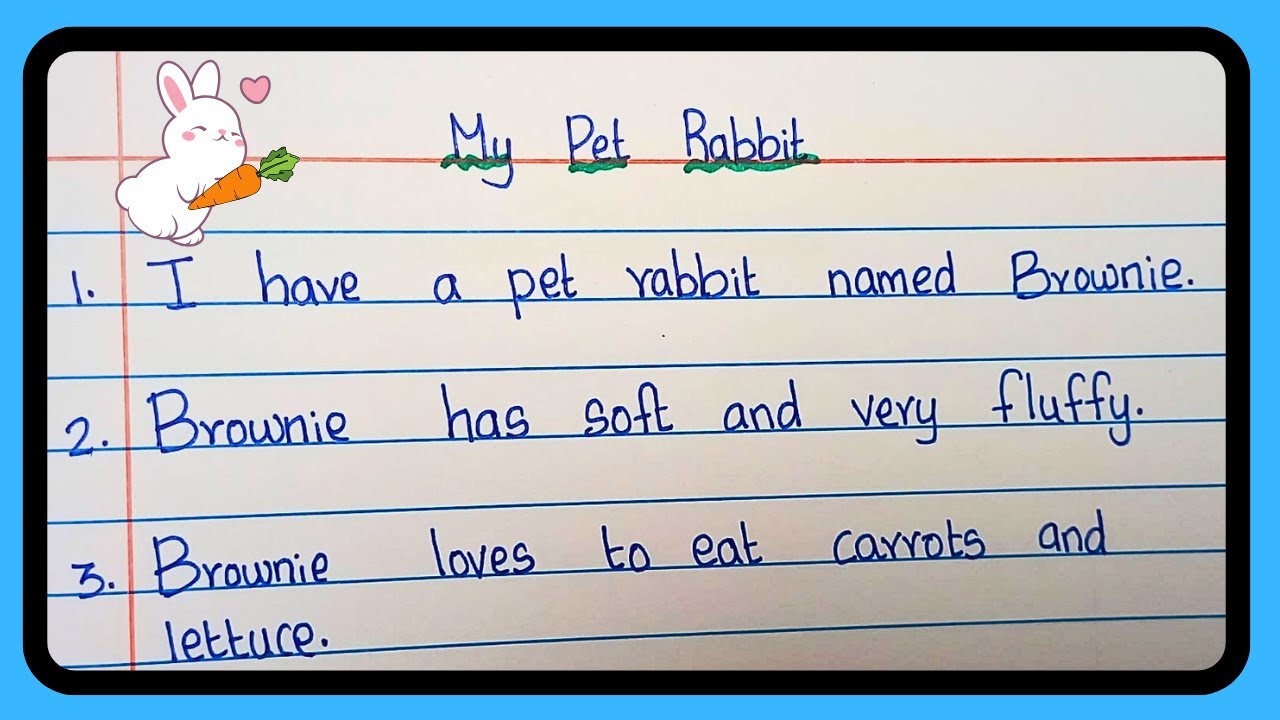 My Pet Rabbit
1. I have a pet rabbit named Brownie.
2. Brownie has soft and very fluffy.
3. Brownie loves to eat carrots and
lettuce.